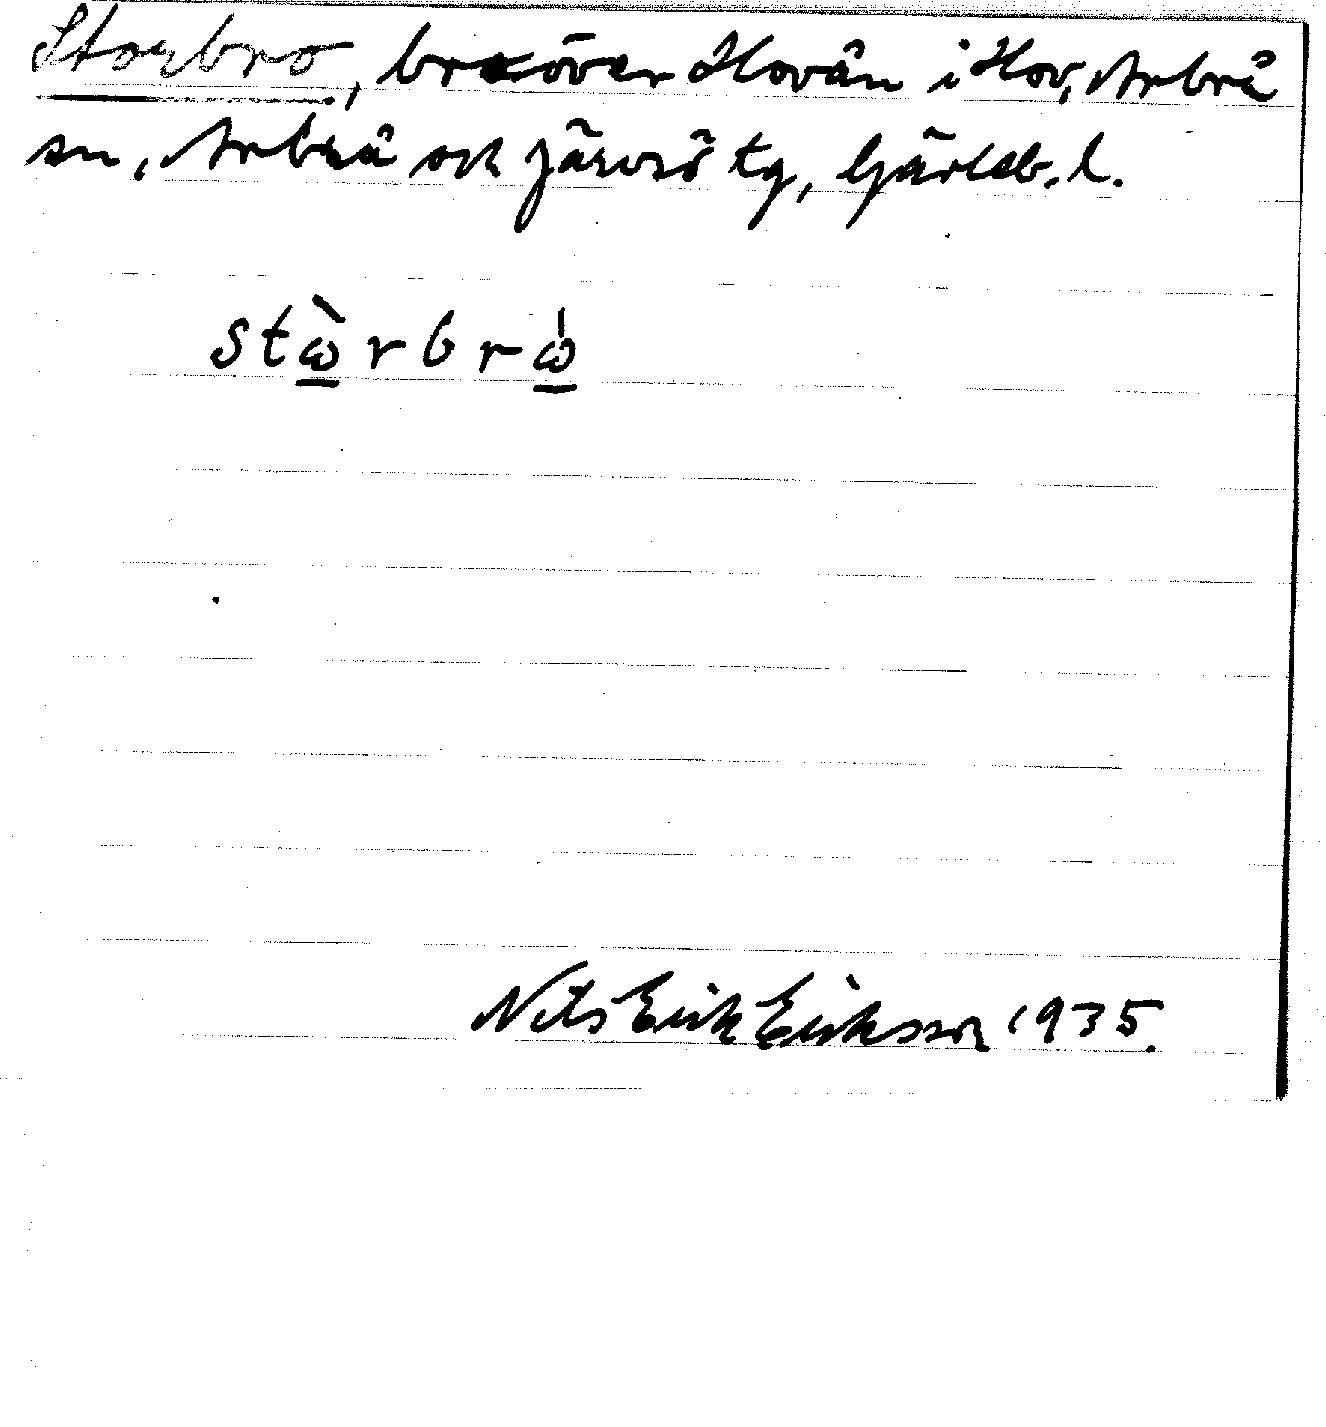 Storbro, bro över Hovån i Hov, Arbrå
sn, Arbrå och Järvsö tg, Gävleb. l.
stὼ̲rbrώ̲
Nils Erik Eriksson 1935.